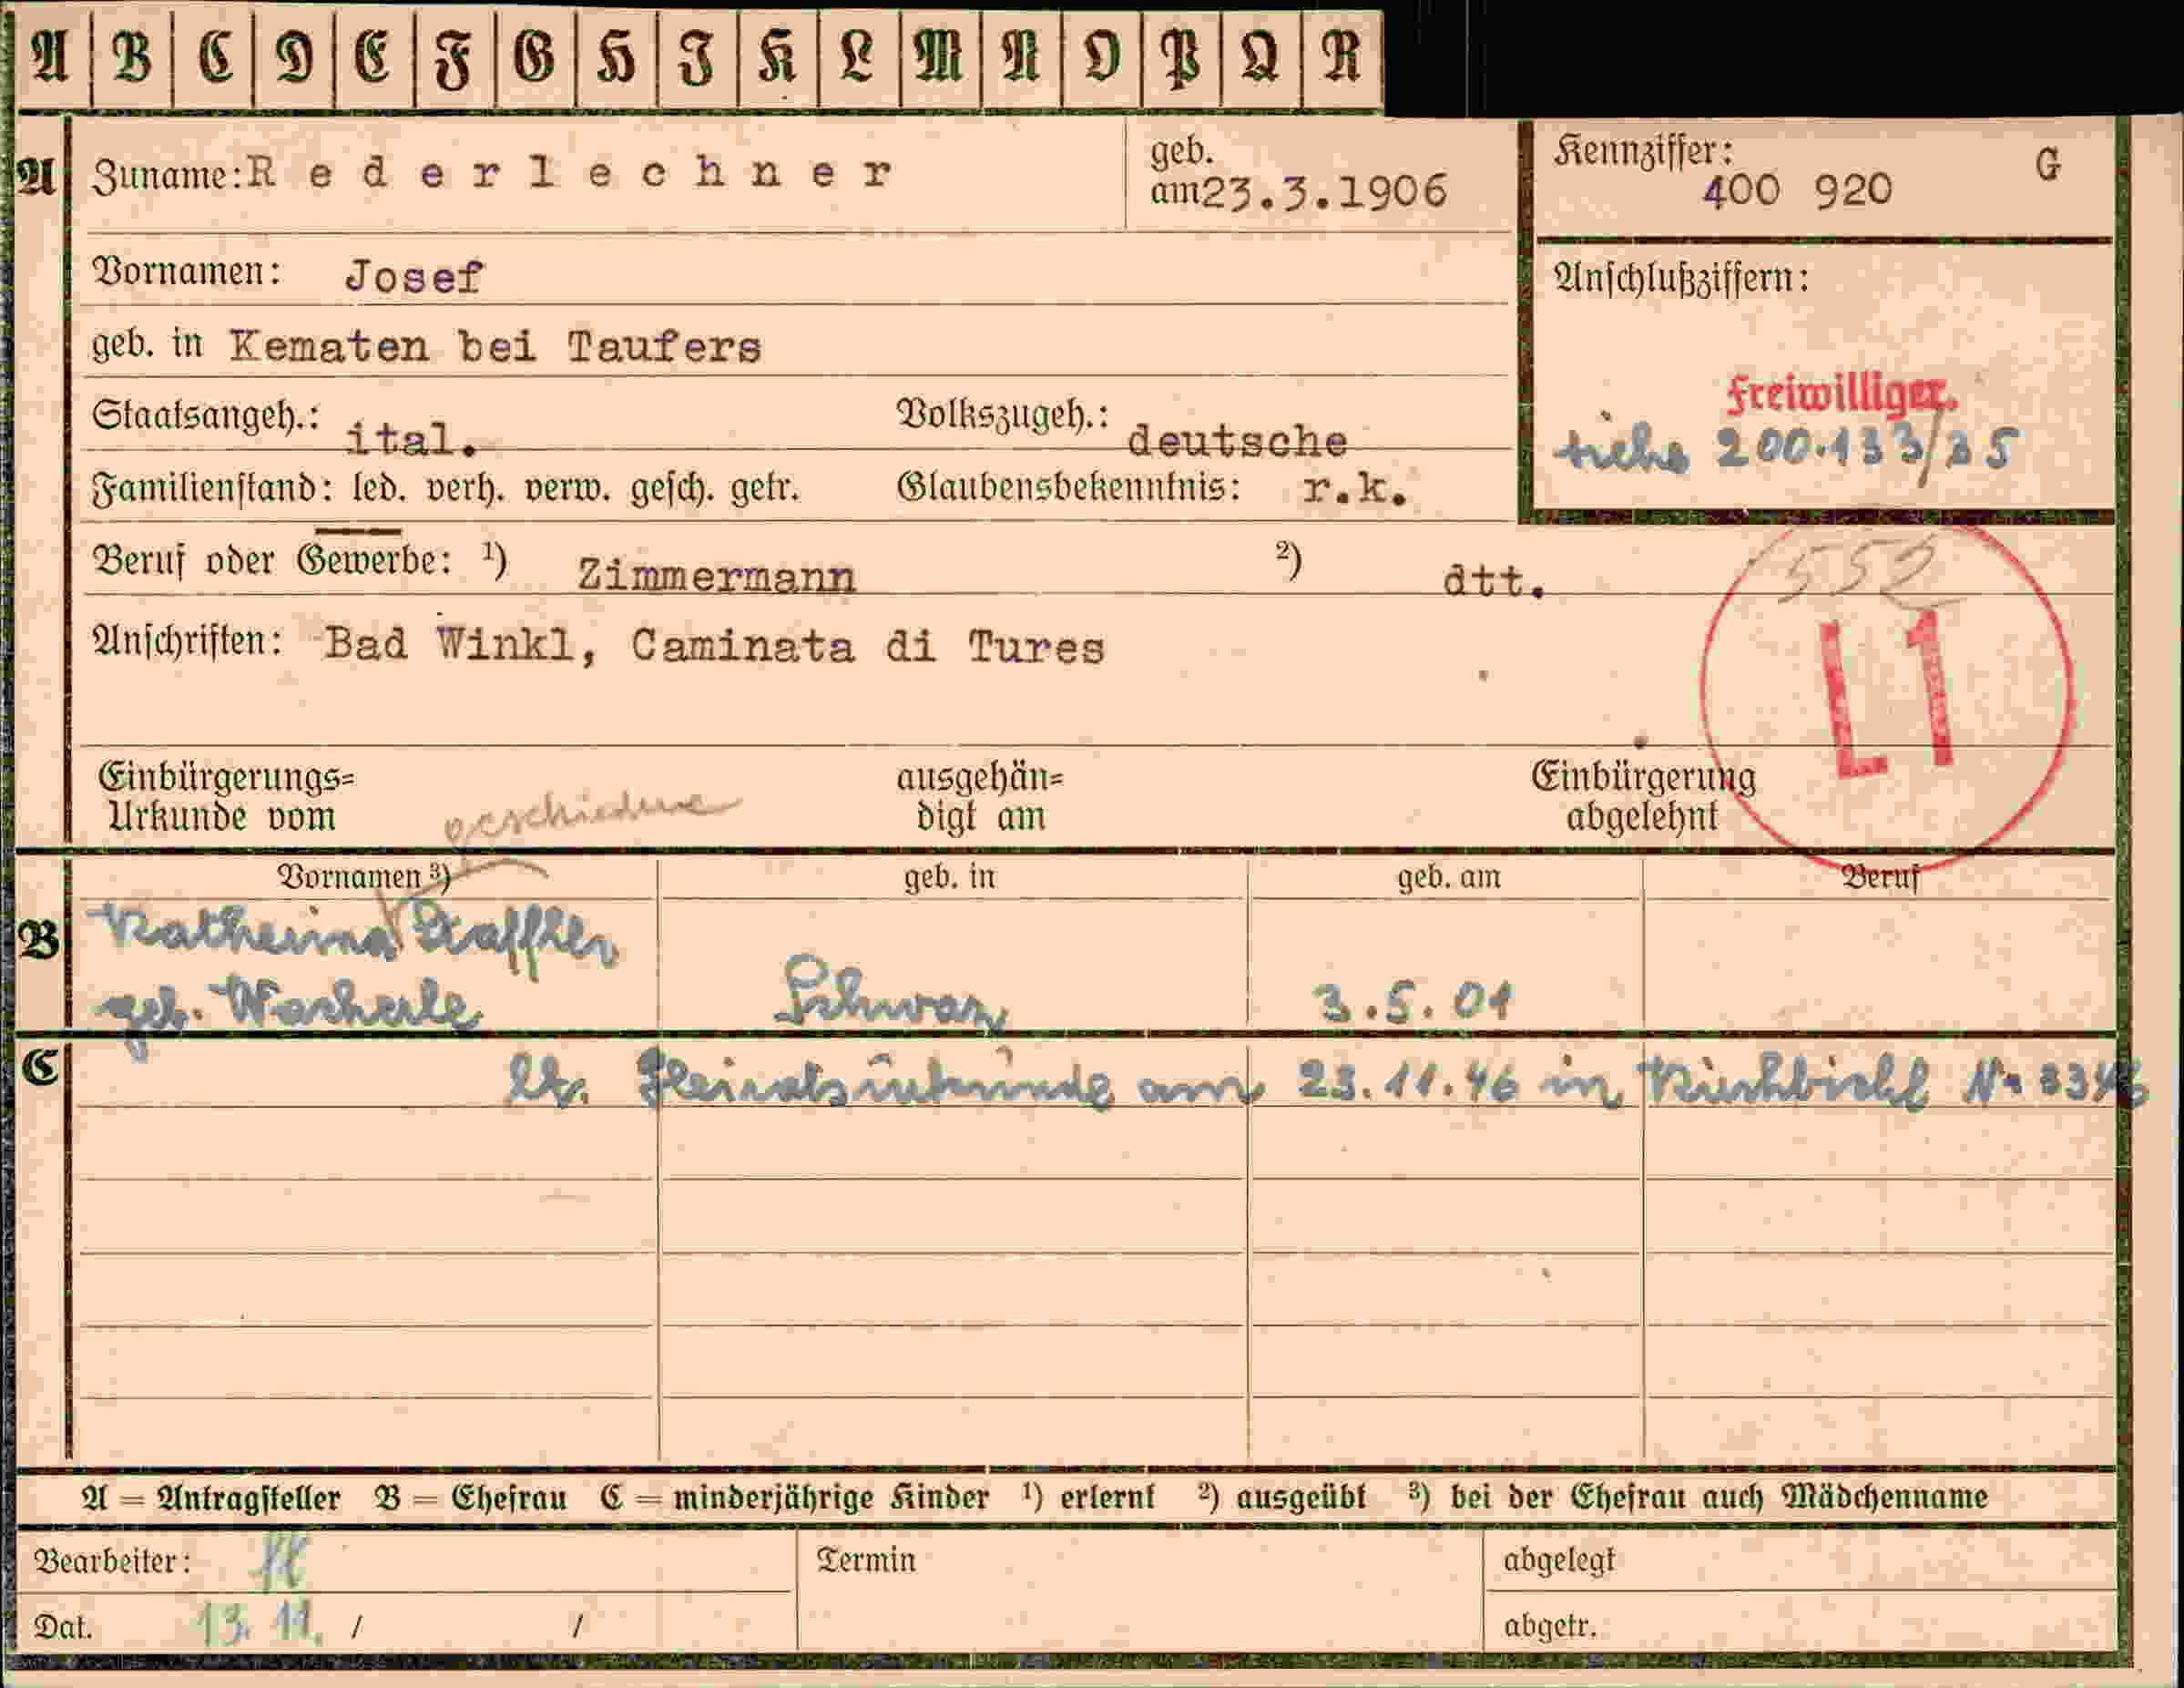 A B C D E F G H I K L M N O P Q R
A Zuname: Rederlechner geb. am 23.3.1906 Kennziffer: 400 920 G
Vornamen: Josef Anschlußziffern:
geb. in Kematen bei Taufers
Freiwilliger.
Staatsangeh.: ital. Volkszugeh.: deutsche siehe 200.133/35
Familienstand: led. verh. verw. gesch. getr. Glaubensbekenntnis: r.k.
Beruf oder Gewerbe: ¹) Zimmermann ²) dtt. 552
Anschriften: Bad Winkl, Caminata di Tures L1
Einbürgerungs= ausgehän= Einbürgerung
Urkunde vom geschiedene digt am abgelehnt
Vornamen ³) geb. in geb. am Beruf
B Katherina
geb. Schwaz 3.5.01
C lt. Heiratsurkunde am 23.11.46 in Kirchbichl
A = Antragsteller B = Ehefrau C = minderjährige Kinder ¹) erlernt ²) ausgeübt ³) bei der Ehefrau auch Mädchenname
Bearbeiter: Termin abgelegt
Dat. 13. 11. / / abgetr.